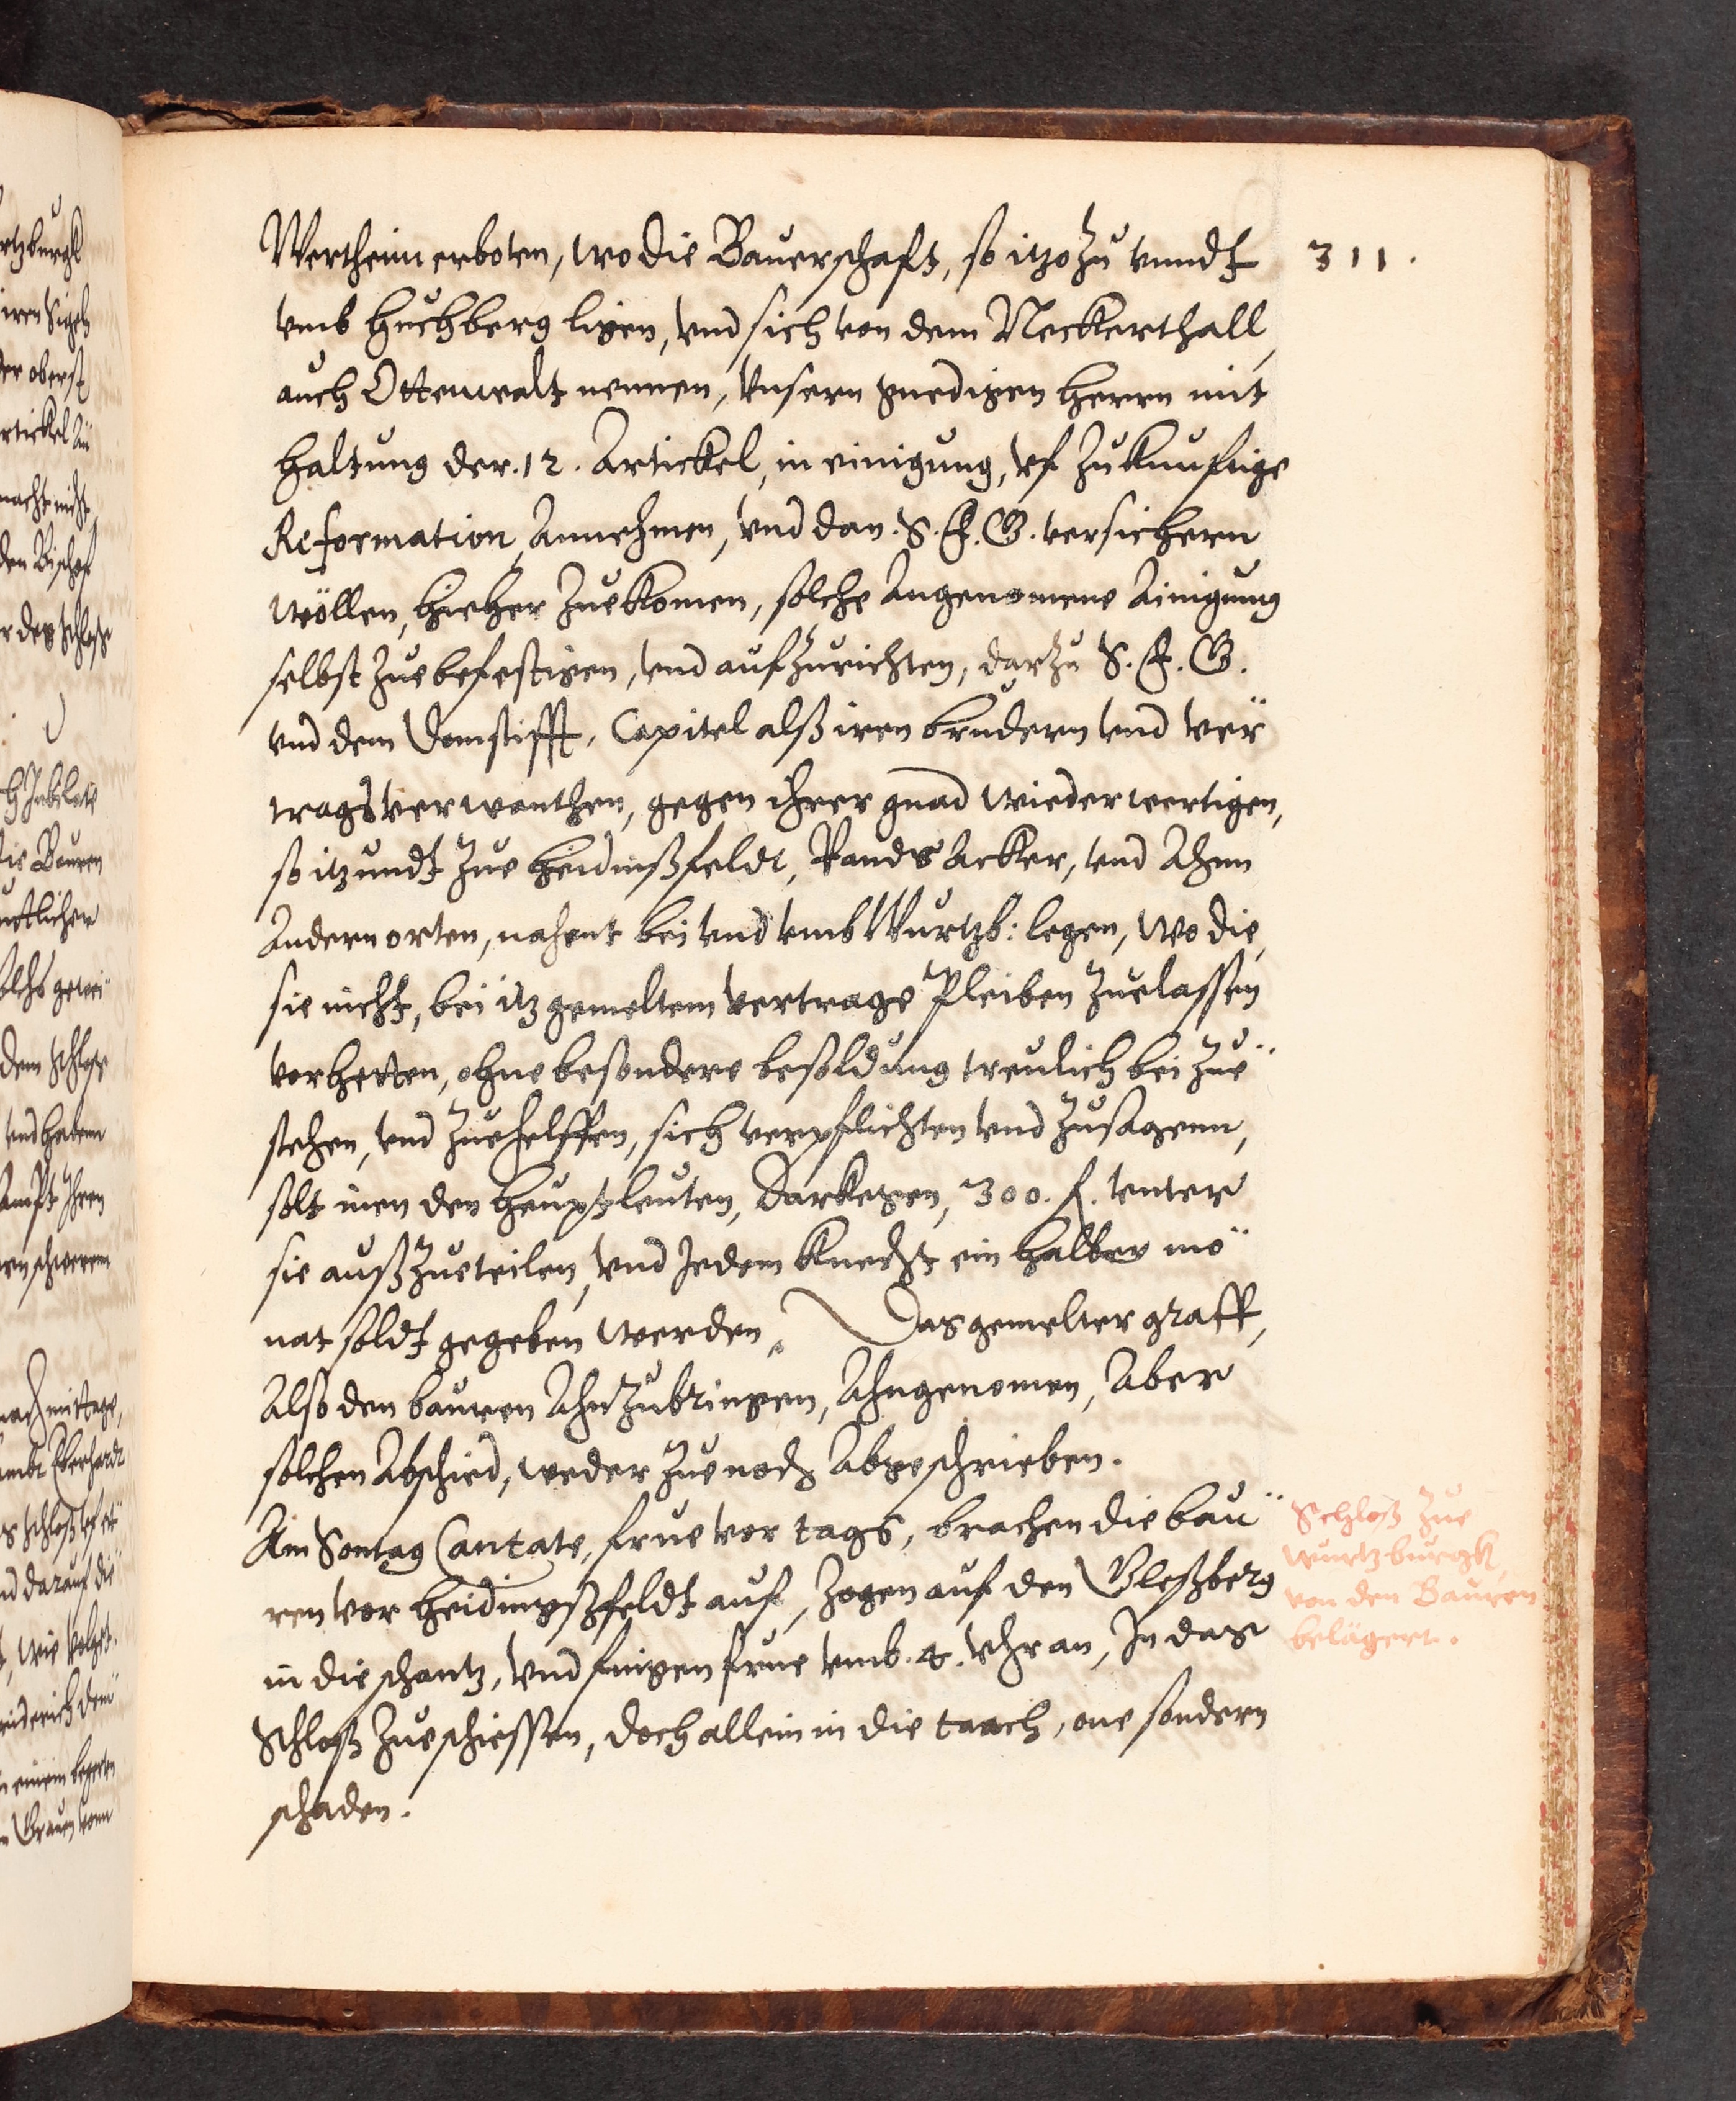 311.
Wertheim erboten, wo die Bauerschaft, so itzo zu vnndt
vmb Huchberg ligen, vnd sich von dem Neckerthall,
auch Ottenwalt nennen, vnsern gnedigen Herrn mit
haltung der .12. Artickel, in einigung, vf zukunftige
Reformation, Annehmen, vnd dan .S.F.G. versichern
wöllen, hieher zue komen, solche Angenomene Ainigung
selbst zue befestigen, vnd aufzurichten, darzu S.F.G.
vnd dem Domstifft, Capitel alß iren brudern vnd ver¨
tragsverwanthen, gegen ihrer gnad wiederwertigen,
so itzundt zue Heidinßfeldt, Rands Acker, vnd Ahnn
Andern orten, nahent bei vnd vmb Wurtzb: legen, wo die,
sie nicht, bei itz gemeltem vertrage Pleiben zue lassen
vorhetten, ohne besondere besoldung treulich bei zue¨
stehen, vnd zuehelffen, sich verpflichten vnd zusagenn,
solt inen den Hauptleuten, Darkegen, 300. f. vnter
sie auß zueteilen, vnd Jedem Knecht ein halber mo¨
nat soldt gegeben werden. Das gemelter graff,
Also den bauren Ahnzubringen, Ahngenomen, Aber
solchen Abschied, weder zue noch Abgeschrieben.
Am Sontag Cantate, frue vor tags, brachen die bau¨
ren vor Heidingßfeldt auf, zogen auf den Gleßberg
in die schantz, vnd fingen frue vmb .4. Vhr an, In das
Schloß zue schiessen, doch allein in die taach, one sondern
schaden.
Schloß zue
Wurtzburgk,
von den Bauren
belägert.